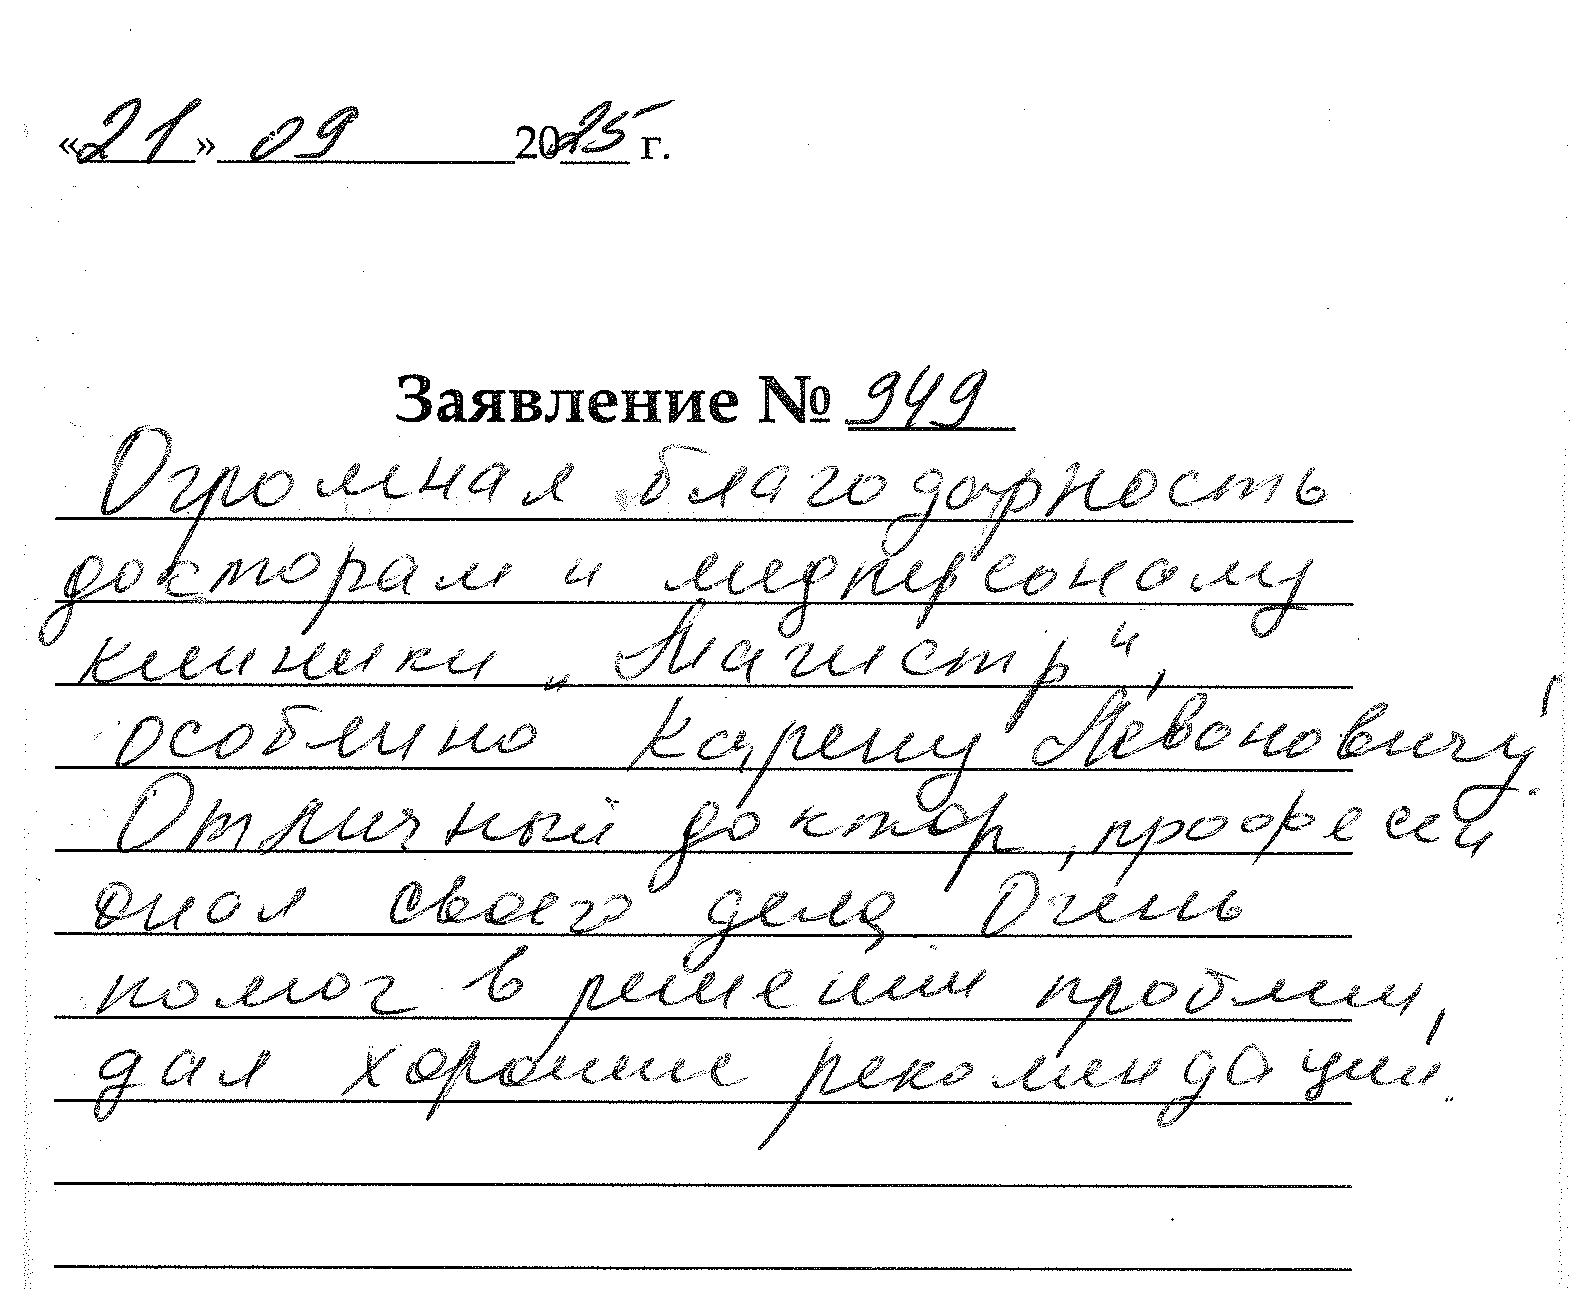 «21» 09 2025 г.
Заявление № 949
Огромная благодарность
докторам и медперсоналу
клиники „Магистр“,
особенно Карену Левоновичу!
Отличный доктор, професси
онал своего дела. Очень
помог в решении проблем,
дал хорошие рекомендации.